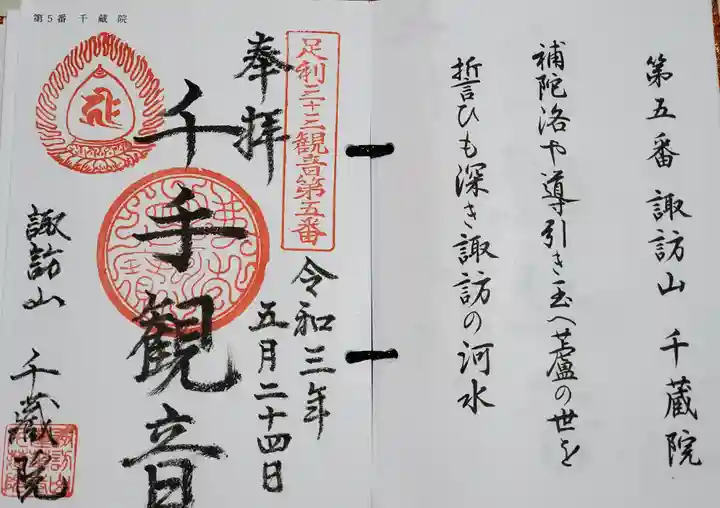 第五番 諏訪山 千蔵院
補陀洛や導引き玉へ芦の世を
誓ひも深き諏訪の河水
第5番 千蔵院
足利三十三観音第五番
奉拝
令和三年
五月二十四日
千手観音
諏訪山 千蔵院